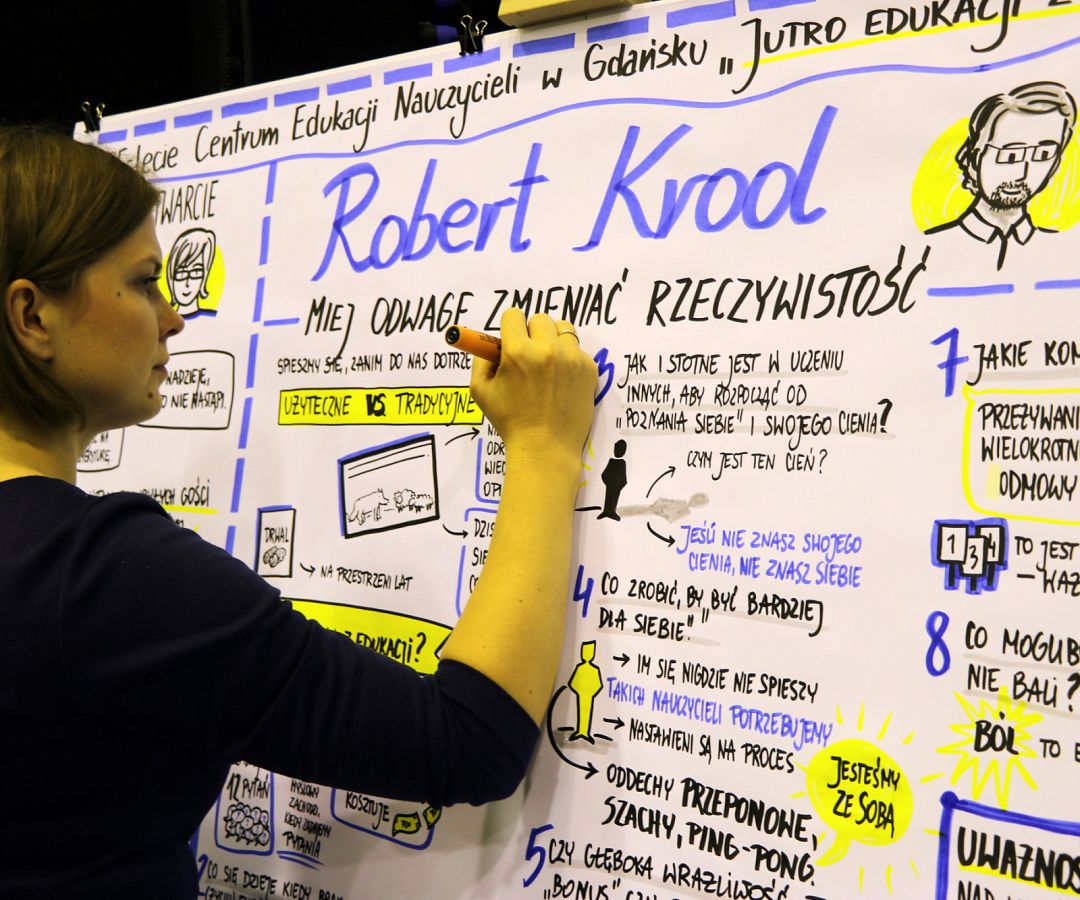 lecie Centrum Edukacji Nauczycieli w Gdańsku „JUTRO EDUKACJI
TWARCIE
NADZIEJĘ,
O NIE NASTĄPI.
GOŚCI
Robert Krool
MIEJ ODWAGĘ ZMIENIAĆ RZECZYWISTOŚĆ
SPIESZMY SIĘ, ZANIM DO NAS DOTRZE
UŻYTECZNE VS. TRADYCYJNE
DRWAL
NA PRZESTRZENI LAT
EDUKACJI?
12 PYTAŃ
MYSŁOWY
ZACHÓD,
KIEDY ZADAJEMY
PYTANIA
KOSZTUJE
CO SIĘ DZIEJE KIEDY
3 JAK I STOTNE JEST W UCZENIU
INNYCH, ABY ROZPOCZĄĆ OD
„POZNANIA SIEBIE" I SWOJEGO CIENIA?
CZYM JEST TEN CIEŃ?
JEŚLI NIE ZNASZ SWOJEGO
CIENIA, NIE ZNASZ SIEBIE
4 CO ZROBIĆ, BY „BYĆ BARDZIEJ
DLA SIEBIE"
IM SIĘ NIGDZIE NIE SPIESZY
TAKICH NAUCZYCIELI POTRZEBUJEMY
NASTAWIENI SĄ NA PROCES
ODDECHY PRZEPONOWE,
SZACHY, PING-PONG.
JESTEŚMY
ZE SOBĄ
5 CZY GŁĘBOKA WRAŻLIWOŚĆ TO
„BONUS" CZY
7 JAKIE KOM
PRZEŻYWANI
WIELOKROTN
ODMOWY
1 3 4
TO JEST
– WAŻ
8 CO MOGLIB
NIE BALI?
BÓL TO
UWAŻNOŚ
NAD